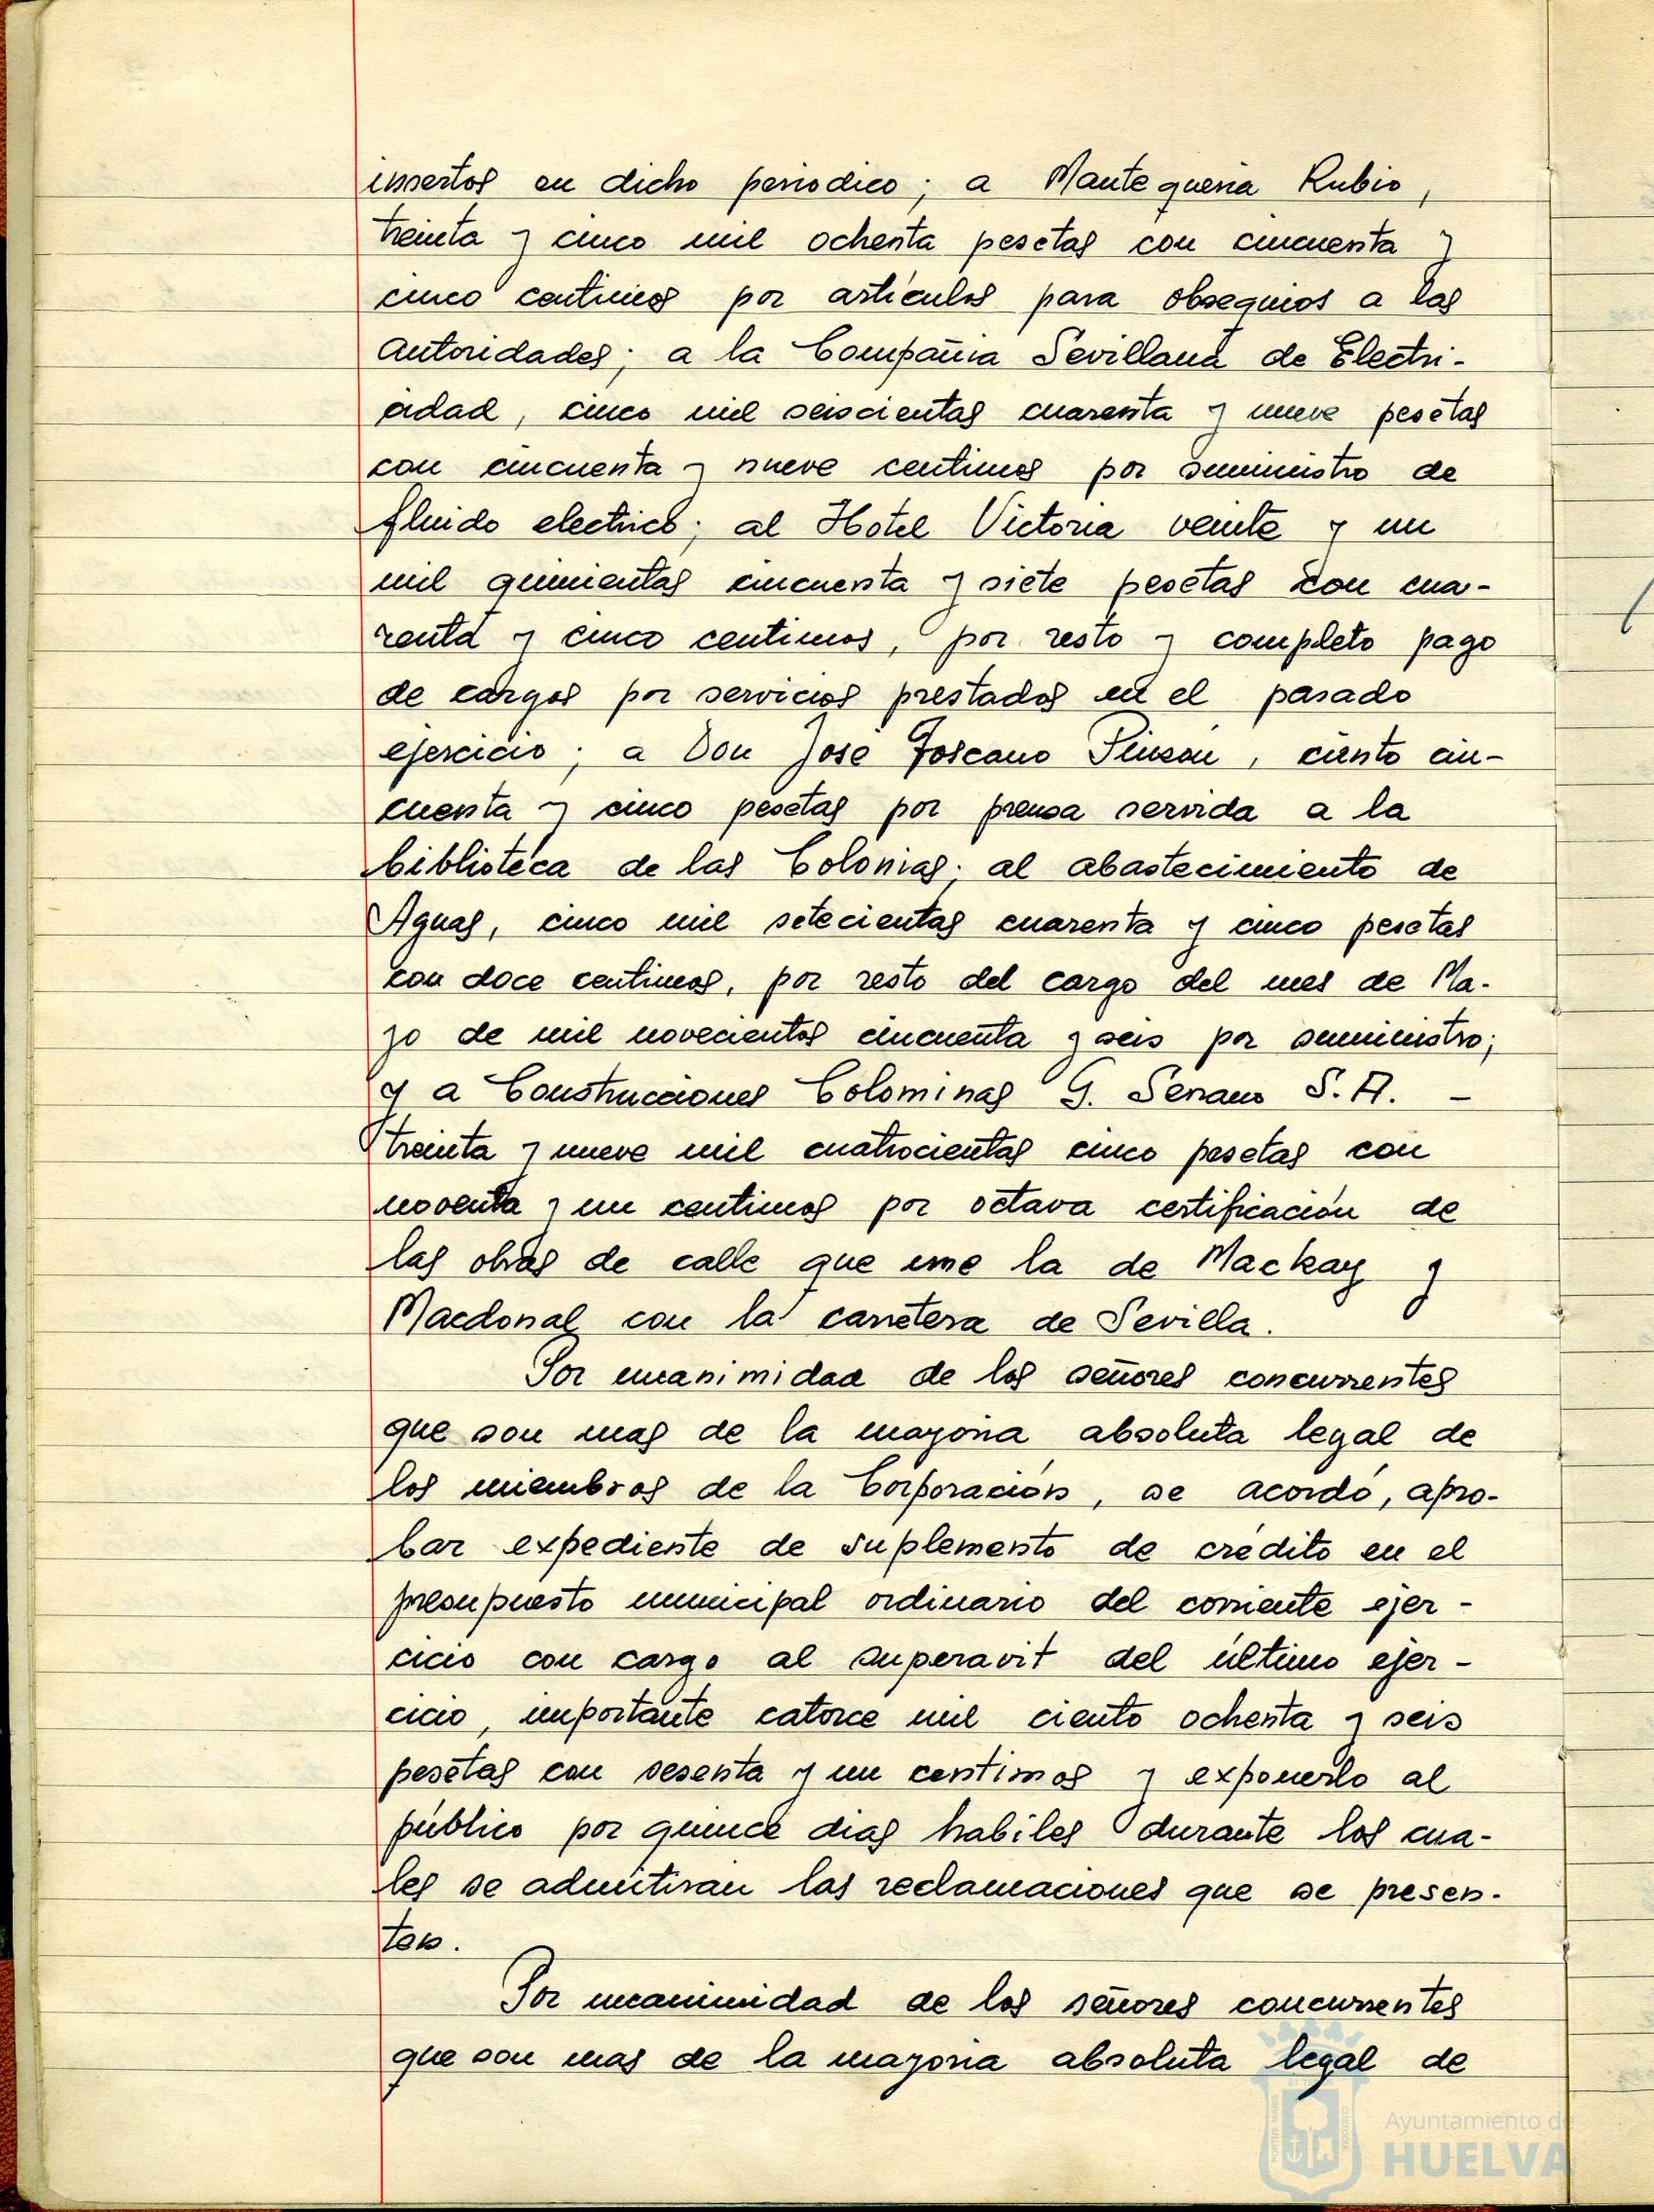 insertos en dicho periodico; a Mantequeria Rubio,
treinta y cinco mil ochenta pesetas con cincuenta y
cinco centimos por artículos para obsequios a las
autoridades; a la Compañia Sevillana de Electri-
cidad, cinco mil seiscientas cuarenta y nueve pesetas
con cincuenta y nueve centimos por suministro de
fluido electrico; al Hotel Victoria veinte y un
mil quinientas cincuenta y siete pesetas con cua-
renta y cinco centimos, por resto y completo pago
de cargos por servicios prestados en el pasado
ejercicio; a Don José Toscano Pinzón, ciento cin-
cuenta y cinco pesetas por prensa servida a la
biblioteca de las Colonias; al abastecimiento de
Aguas, cinco mil setecientas cuarenta y cinco pesetas
con doce centimos, por resto del cargo del mes de Ma-
yo de mil novecientos cincuenta y seis por suministro;
y a Construcciones Colominas G. Serrano S.A. -
treinta y nueve mil cuatrocientas cinco pesetas con
noventa y un centimos por octava certificación de
las obras de calle que une la de Mackay y
Macdonal con la carretera de Sevilla.
Por unanimidad de los señores concurrentes
que son mas de la mayoria absoluta legal de
los miembros de la Corporación, se acordó, apro-
bar expediente de suplemento de crédito en el
presupuesto municipal ordinario del corriente ejer-
cicio con cargo al superavit del último ejer-
cicio, importante catorce mil ciento ochenta y seis
pesetas con sesenta y un centimos y exponerlo al
público por quince dias habiles durante los cua-
les se admitiran las reclamaciones que se presen-
ten.
Por unanimidad de los señores concurrentes
que son mas de la mayoria absoluta legal de
Ayuntamiento de
HUELVA